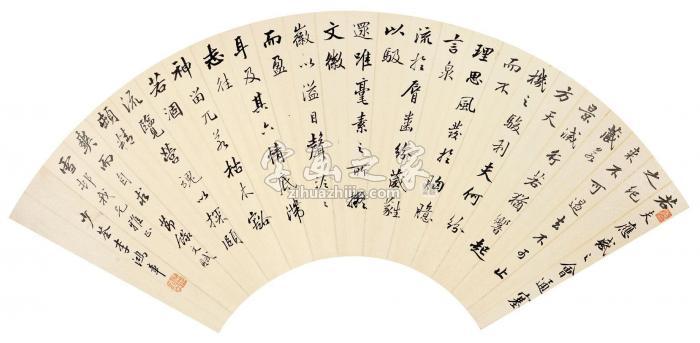 若
夫應感之會通塞
之紀
來不可遏去不可止
藏若
景滅行猶響起
方天
機之駿利夫何紛
而不
理思風發於胸臆
言泉
流於脣齒紛葳蕤
以馺
遝唯毫素之所擬
文徽
徽以溢目聲泠泠
而盈
耳及其六情底滯
志往
神留兀若枯木豁
若涸
流覽營魂以探賾
頓精爽而自求
節錄文賦
雪邨我兄雅正
少荃李鴻章
字画之家
zihuazhijia.com